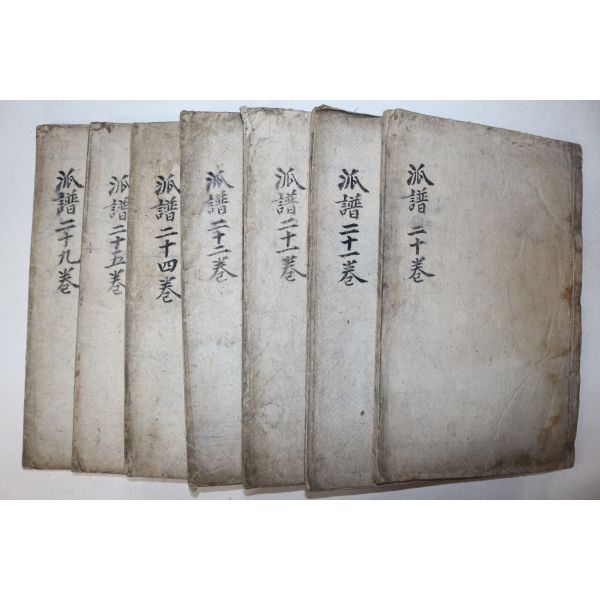 泒譜 二十卷
泒譜 二十一卷
泒譜 二十一卷
泒譜 二十二卷
泒譜 二十四卷
泒譜 二十五卷
泒譜 二十九卷